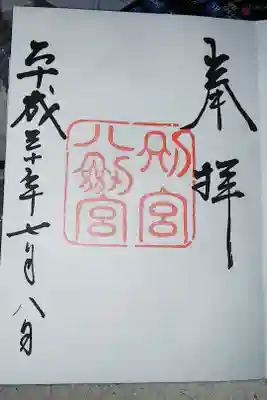 奉拝
別宮
八剱宮
平成三十年七月八日